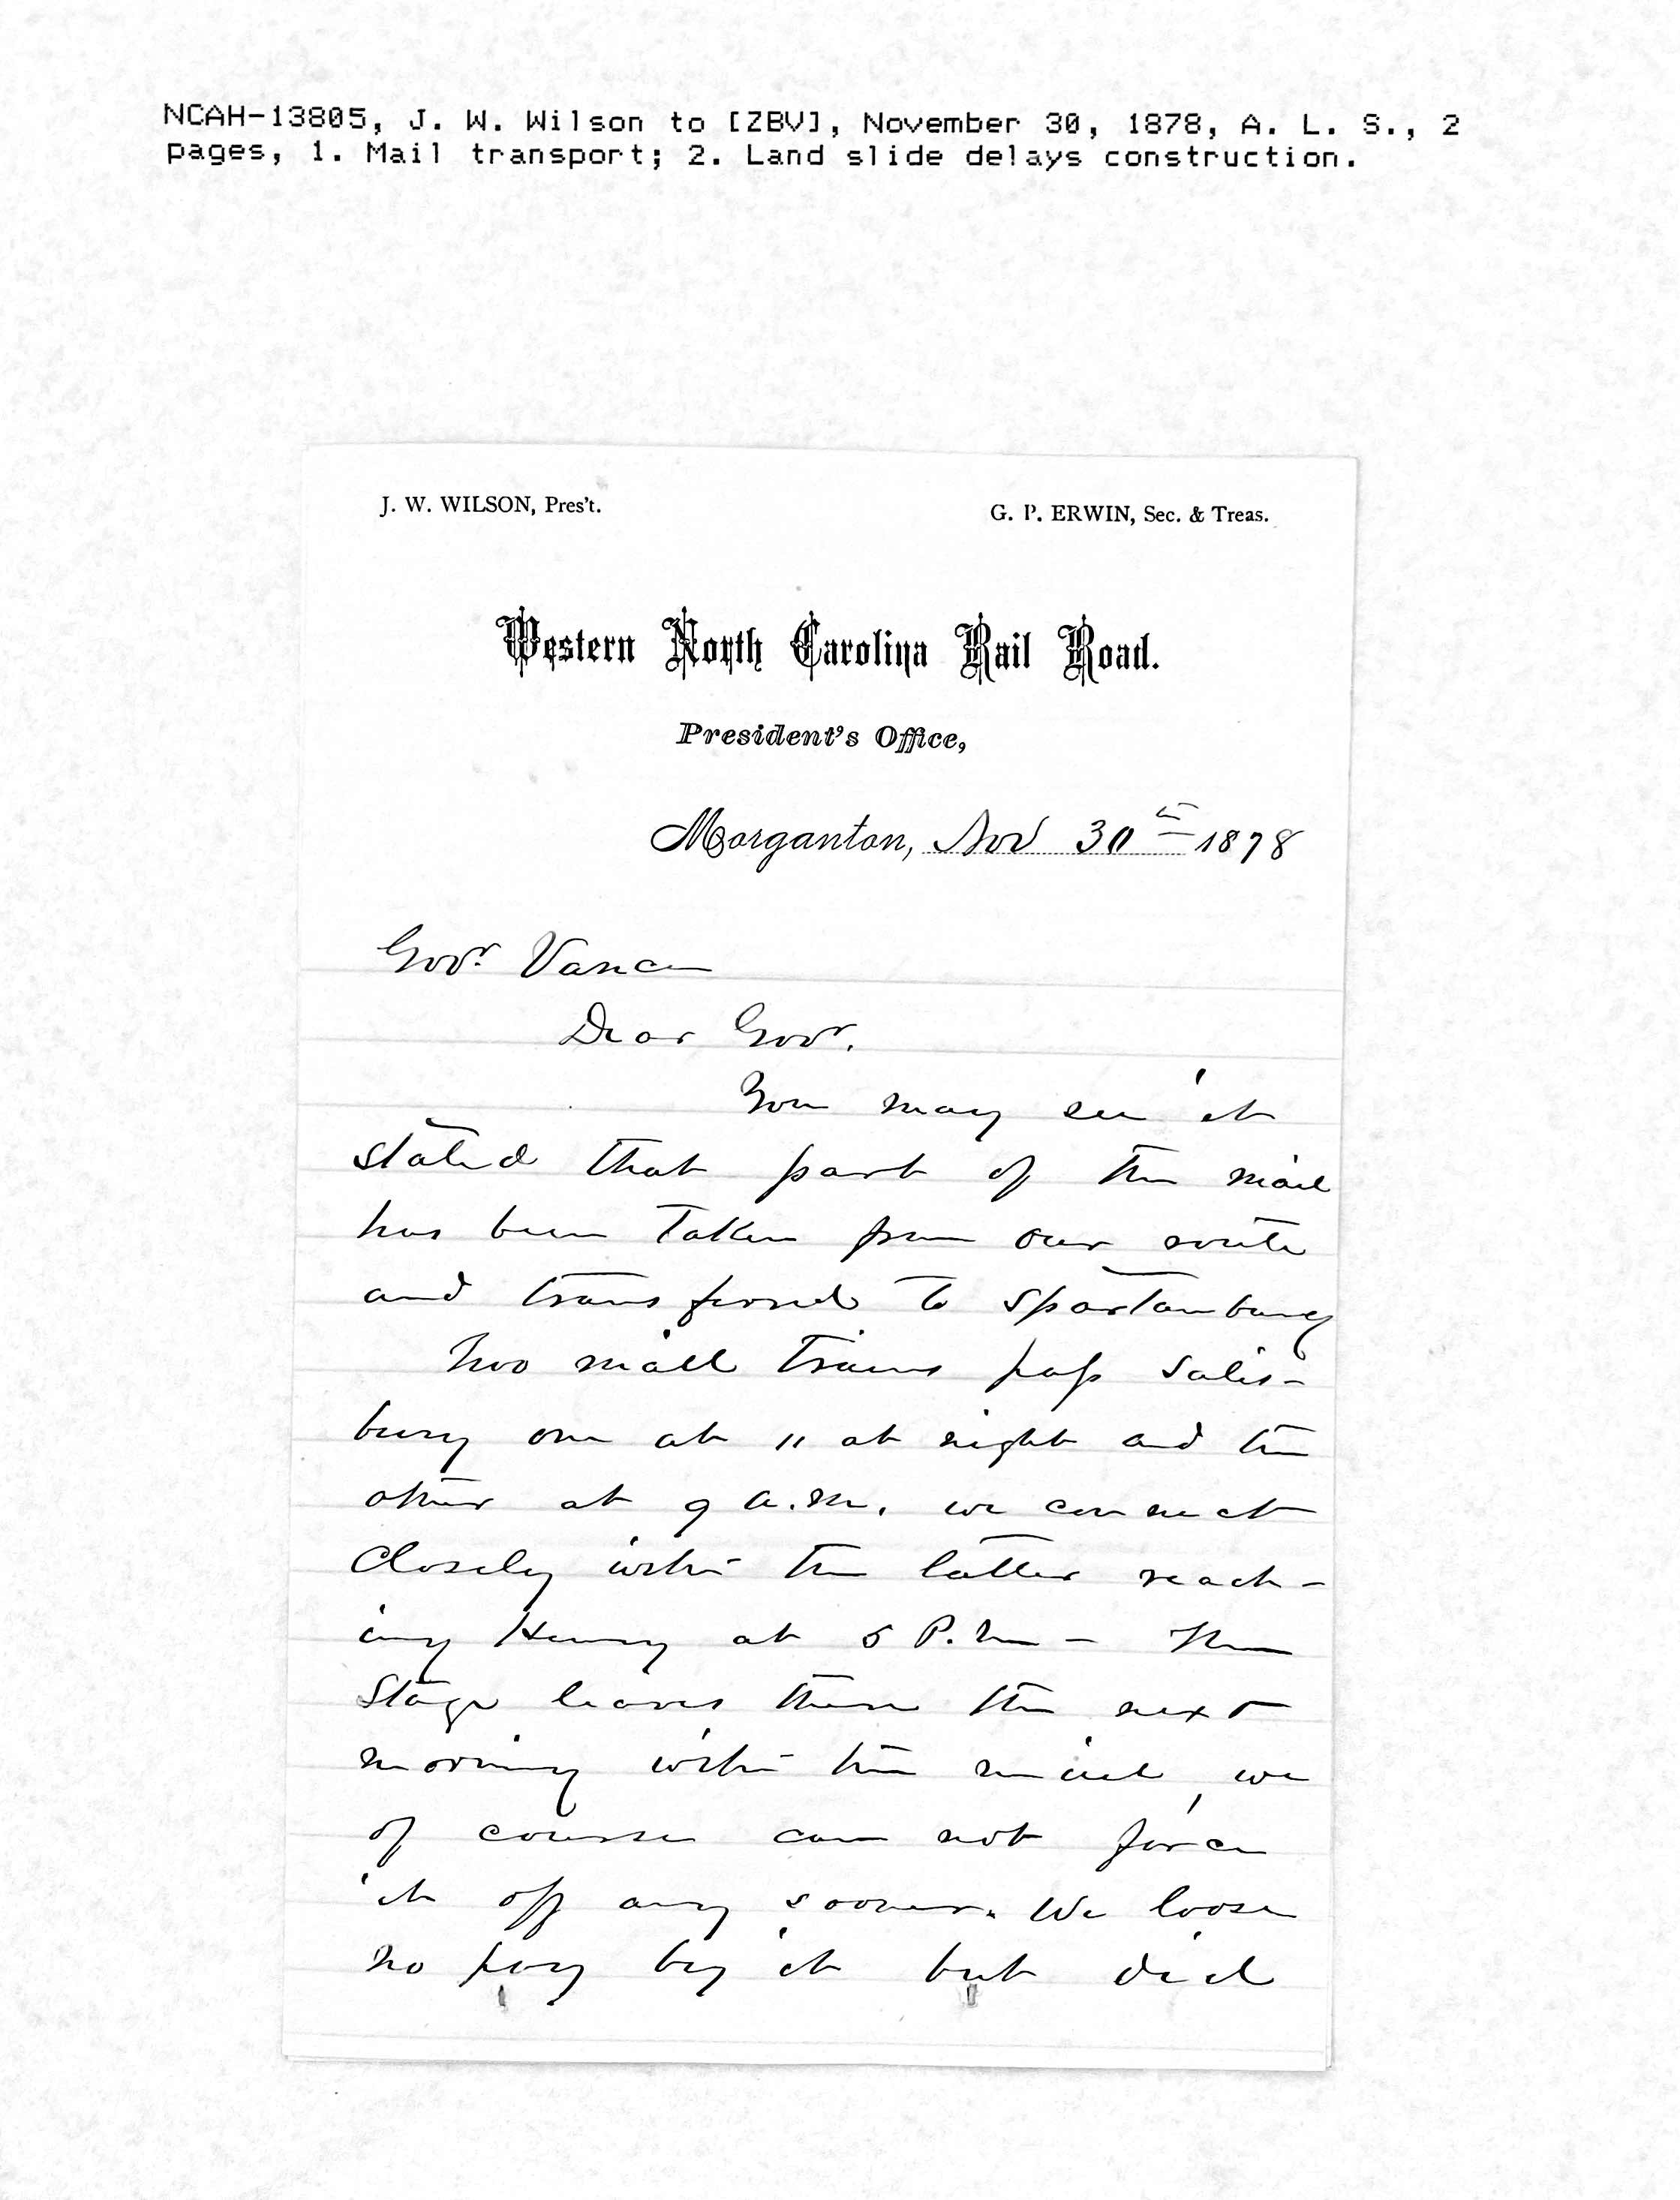 NCAH-13805, J. W. Wilson to [ZBV], November 30, 1878, A. L. S., 2
pages, 1. Mail transport; 2. Land slide delays construction.
J. W. WILSON, Pres't.
G. P. ERWIN, Sec. & Treas.
Western North Carolina Rail Road.
President's Office,
Morganton, Nov 30th 1878
Govr. Vance
Dear Govr.
You may see it
stated that part of the mail
has been taken from our route
and transferred to Spartanburg
Two mail trains pass Salis-
bury one at 11 at night and the
other at 9 a.m. we connect
closely with the latter reach-
ing Henry at 5 P.M - The
Stage leaves there the next
morning with the mail, we
of course can not force
it off any sooner. We loose
no pay by it but did